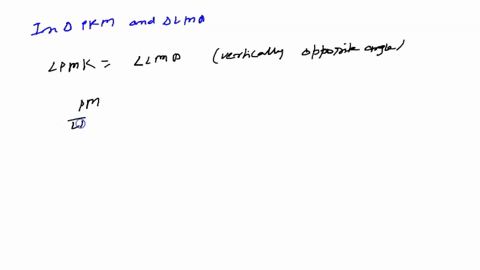 In Δ PKM and ΔLMQ
∠PMK = ∠LMQ (vertically opposite angle)
PM